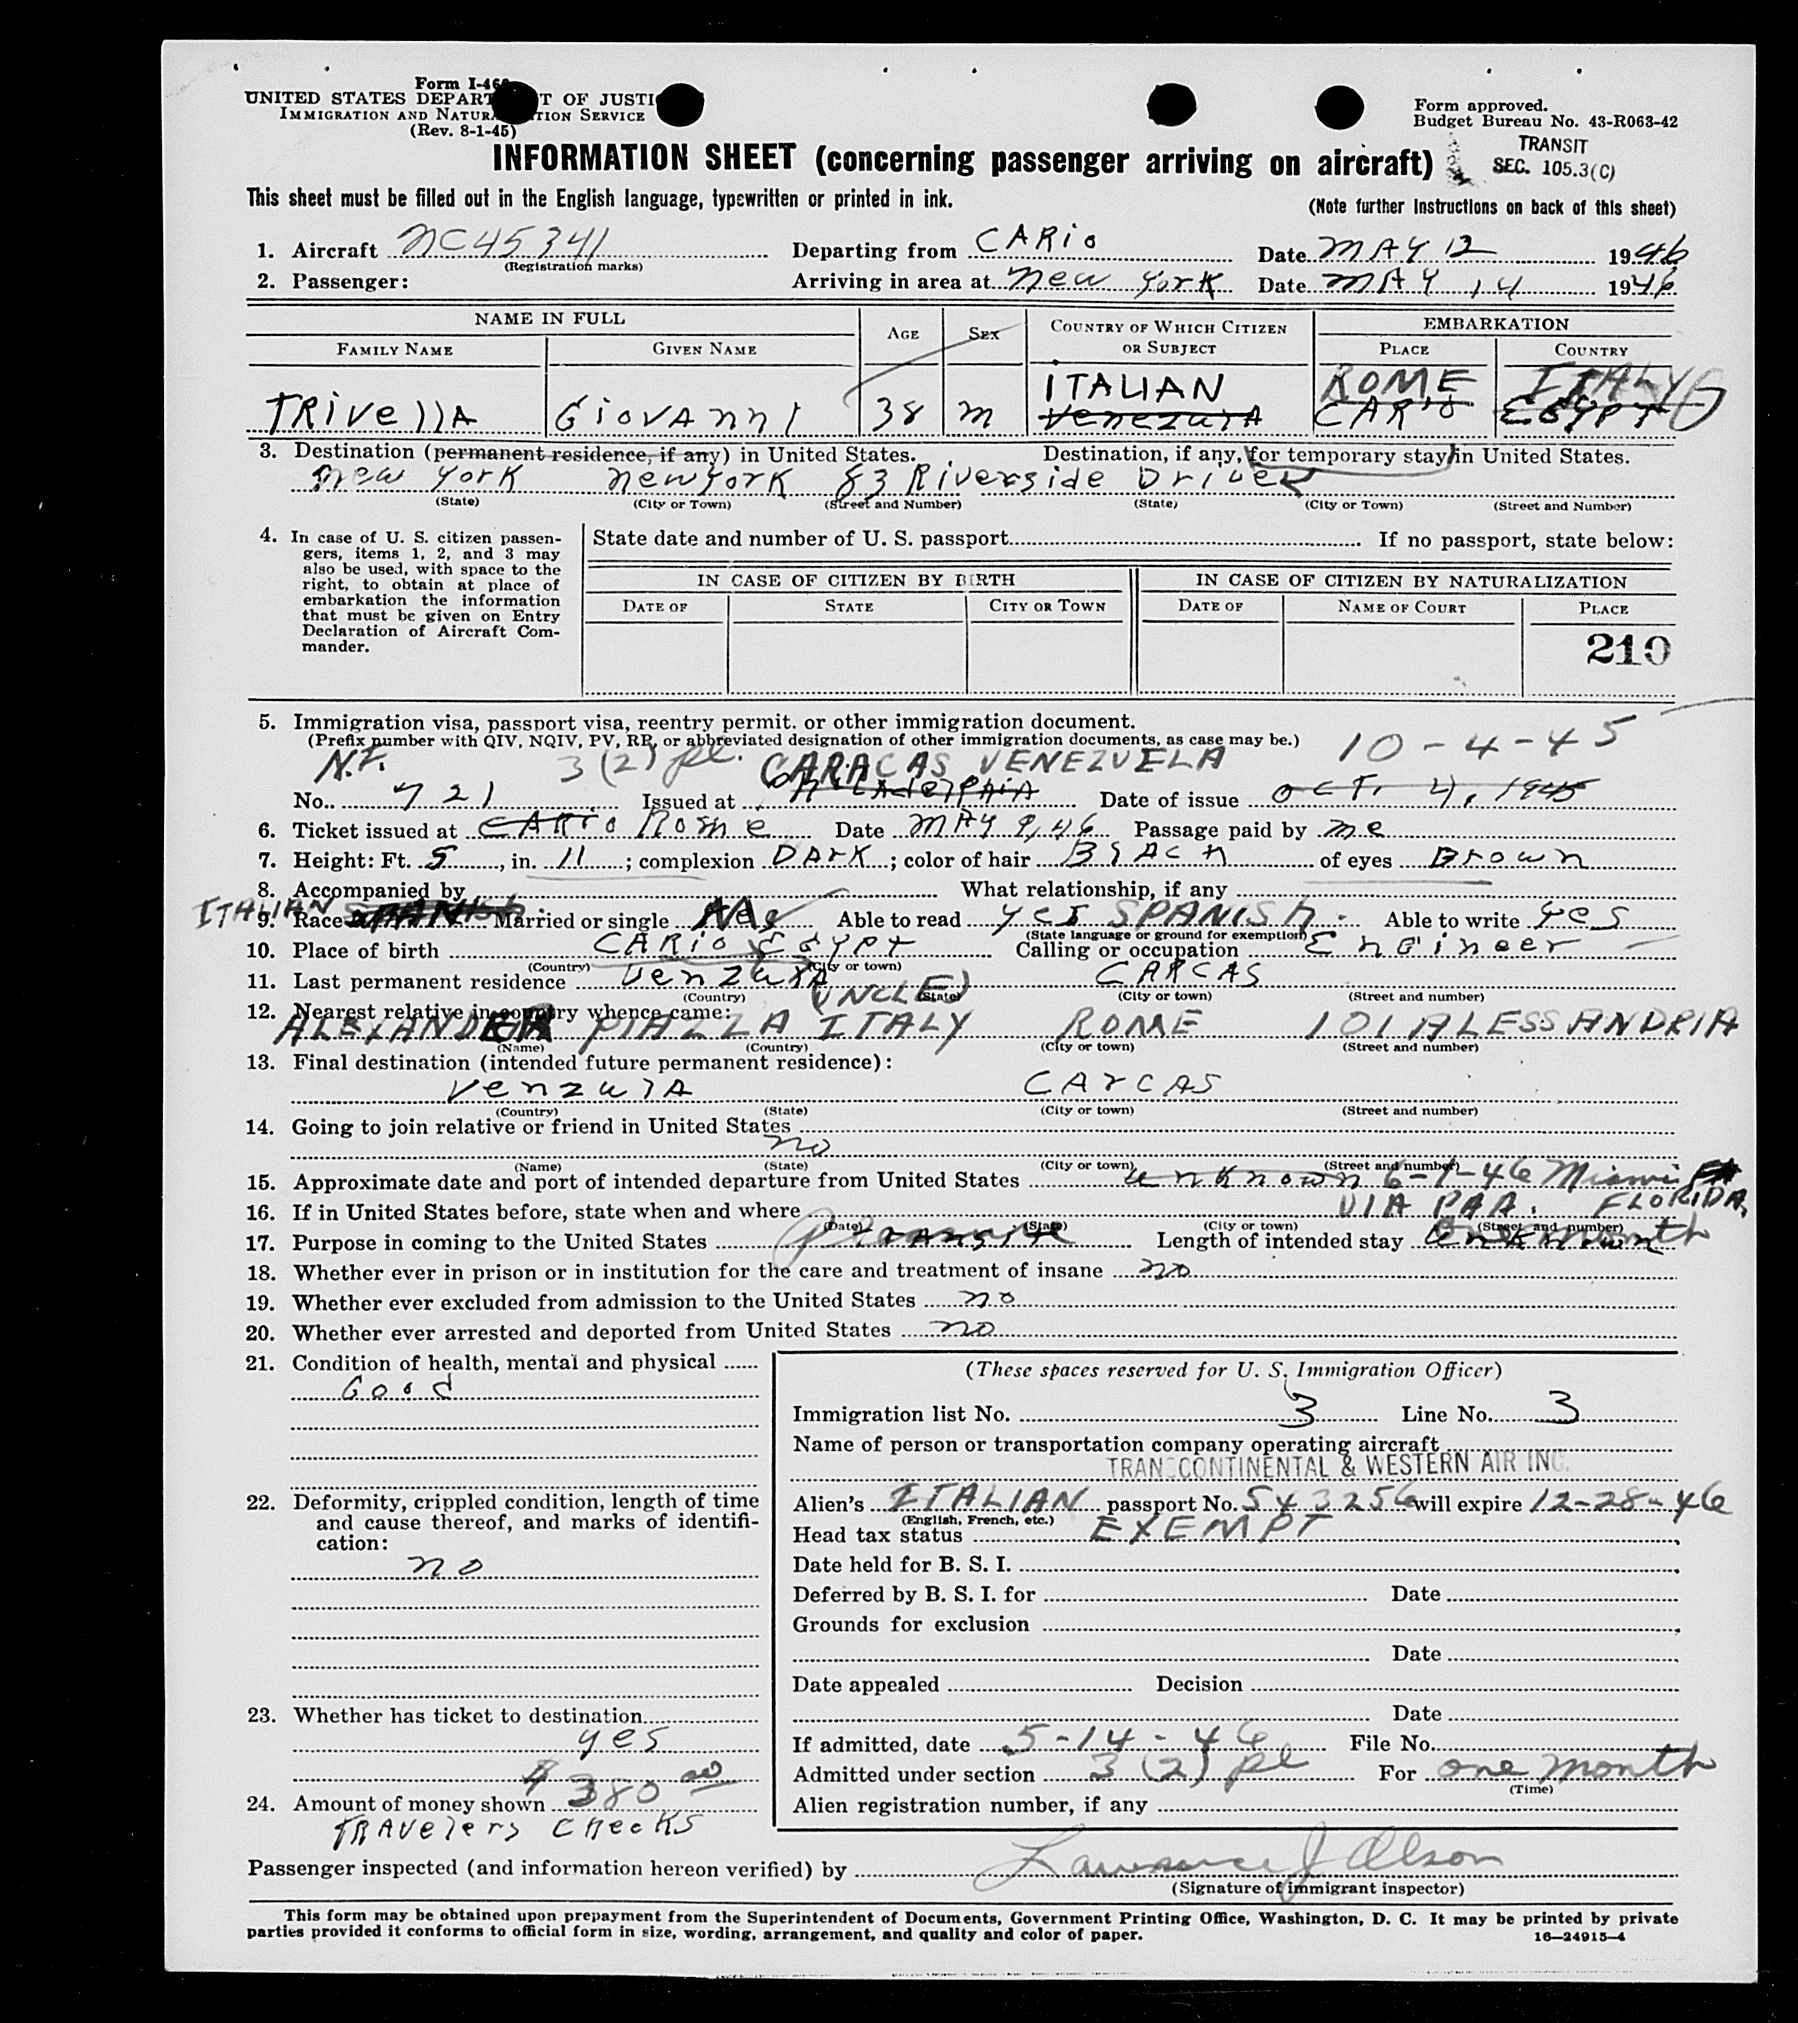 Form I-46
UNITED STATES DEPART T OF JUSTI
IMMIGRATION AND NATUR TION SERVICE
(Rev. 8-1-45)
Form approved.
Budget Bureau No. 43-R063-42
TRANSIT
SEC. 105.3(C)
INFORMATION SHEET (concerning passenger arriving on aircraft)
This sheet must be filled out in the English language, typewritten or printed in ink.
(Note further instructions on back of this sheet)
1. Aircraft NC45341 Departing from CARiO Date MAY 12 1946
(Registration marks)
2. Passenger: Arriving in area at New York Date MAY 14 1946
NAME IN FULL AGE SEX COUNTRY OF WHICH CITIZEN OR SUBJECT EMBARKATION
FAMILY NAME GIVEN NAME PLACE COUNTRY
ITALIAN ROME ITALY
TRivellA GiovAnni 38 m VenezulA CARiO EGYPT
3. Destination (permanent residence, if any) in United States. Destination, if any, (for temporary stay) in United States.
New York New York 83 Riverside Drive
(State) (City or Town) (Street and Number) (State) (City or Town) (Street and Number)
4. In case of U. S. citizen passen-
gers, items 1, 2, and 3 may
also be used, with space to the
right, to obtain at place of
embarkation the information
that must be given on Entry
Declaration of Aircraft Com-
mander.
State date and number of U. S. passport If no passport, state below:
IN CASE OF CITIZEN BY BIRTH IN CASE OF CITIZEN BY NATURALIZATION
DATE OF STATE CITY OR TOWN DATE OF NAME OF COURT PLACE
210
5. Immigration visa, passport visa, reentry permit, or other immigration document.
(Prefix number with QIV, NQIV, PV, RP, or abbreviated designation of other immigration documents, as case may be.)
3(2) pl. CARACAS VENEZUELA 10-4-45
No. 721 Issued at PhilAdelphiA Date of issue OCT. 4, 1945
6. Ticket issued at CARiO Rome Date MAY 9, 46 Passage paid by me
7. Height: Ft. 5, in. 11; complexion DArk; color of hair BlAck of eyes Brown
8. Accompanied by What relationship, if any
ITALIAN
9. Race SPANISh Married or single Able to read yes SPANISh. Able to write yes
(State language or ground for exemption)
10. Place of birth CARiO EGYPT Calling or occupation EnGineer
(Country) (City or town)
11. Last permanent residence VenzulA CARCAS
(Country) (State) (City or town) (Street and number)
(UNCLE)
12. Nearest relative in country whence came:
ALEXANDER PIAZZA ITALY ROME 101 ALESSANDRIA
(Name) (Country) (City or town) (Street and number)
13. Final destination (intended future permanent residence):
VenzulA CArCAS
(Country) (State) (City or town) (Street and number)
14. Going to join relative or friend in United States
no
(Name) (State) (City or town) (Street and number)
15. Approximate date and port of intended departure from United States unknown 6-1-46 Miami
VIA PAA. FLORIDA,
16. If in United States before, state when and where
(Date) (State) (City or town) (Street and number)
17. Purpose in coming to the United States Transite Length of intended stay
18. Whether ever in prison or in institution for the care and treatment of insane no
19. Whether ever excluded from admission to the United States no
20. Whether ever arrested and deported from United States no
21. Condition of health, mental and physical
Good
22. Deformity, crippled condition, length of time
and cause thereof, and marks of identifi-
cation:
no
23. Whether has ticket to destination
yes
24. Amount of money shown $380 00
TRAvelers CHecKS
(These spaces reserved for U. S. Immigration Officer)
Immigration list No. 3 Line No. 3
Name of person or transportation company operating aircraft
TRANSCONTINENTAL & WESTERN AIR INC.
Alien's ITALIAN passport No. 543256 will expire 12-28-46
(English, French, etc.)
Head tax status EXEMPT
Date held for B. S. I.
Deferred by B. S. I. for Date
Grounds for exclusion
Date
Date appealed Decision
Date
If admitted, date 5-14-46 File No.
Admitted under section 3(2) pl For one month
(Time)
Alien registration number, if any
Passenger inspected (and information hereon verified) by Lawrence J Olson
(Signature of immigrant inspector)
This form may be obtained upon prepayment from the Superintendent of Documents, Government Printing Office, Washington, D. C. It may be printed by private
parties provided it conforms to official form in size, wording, arrangement, and quality and color of paper.
16—24915-4